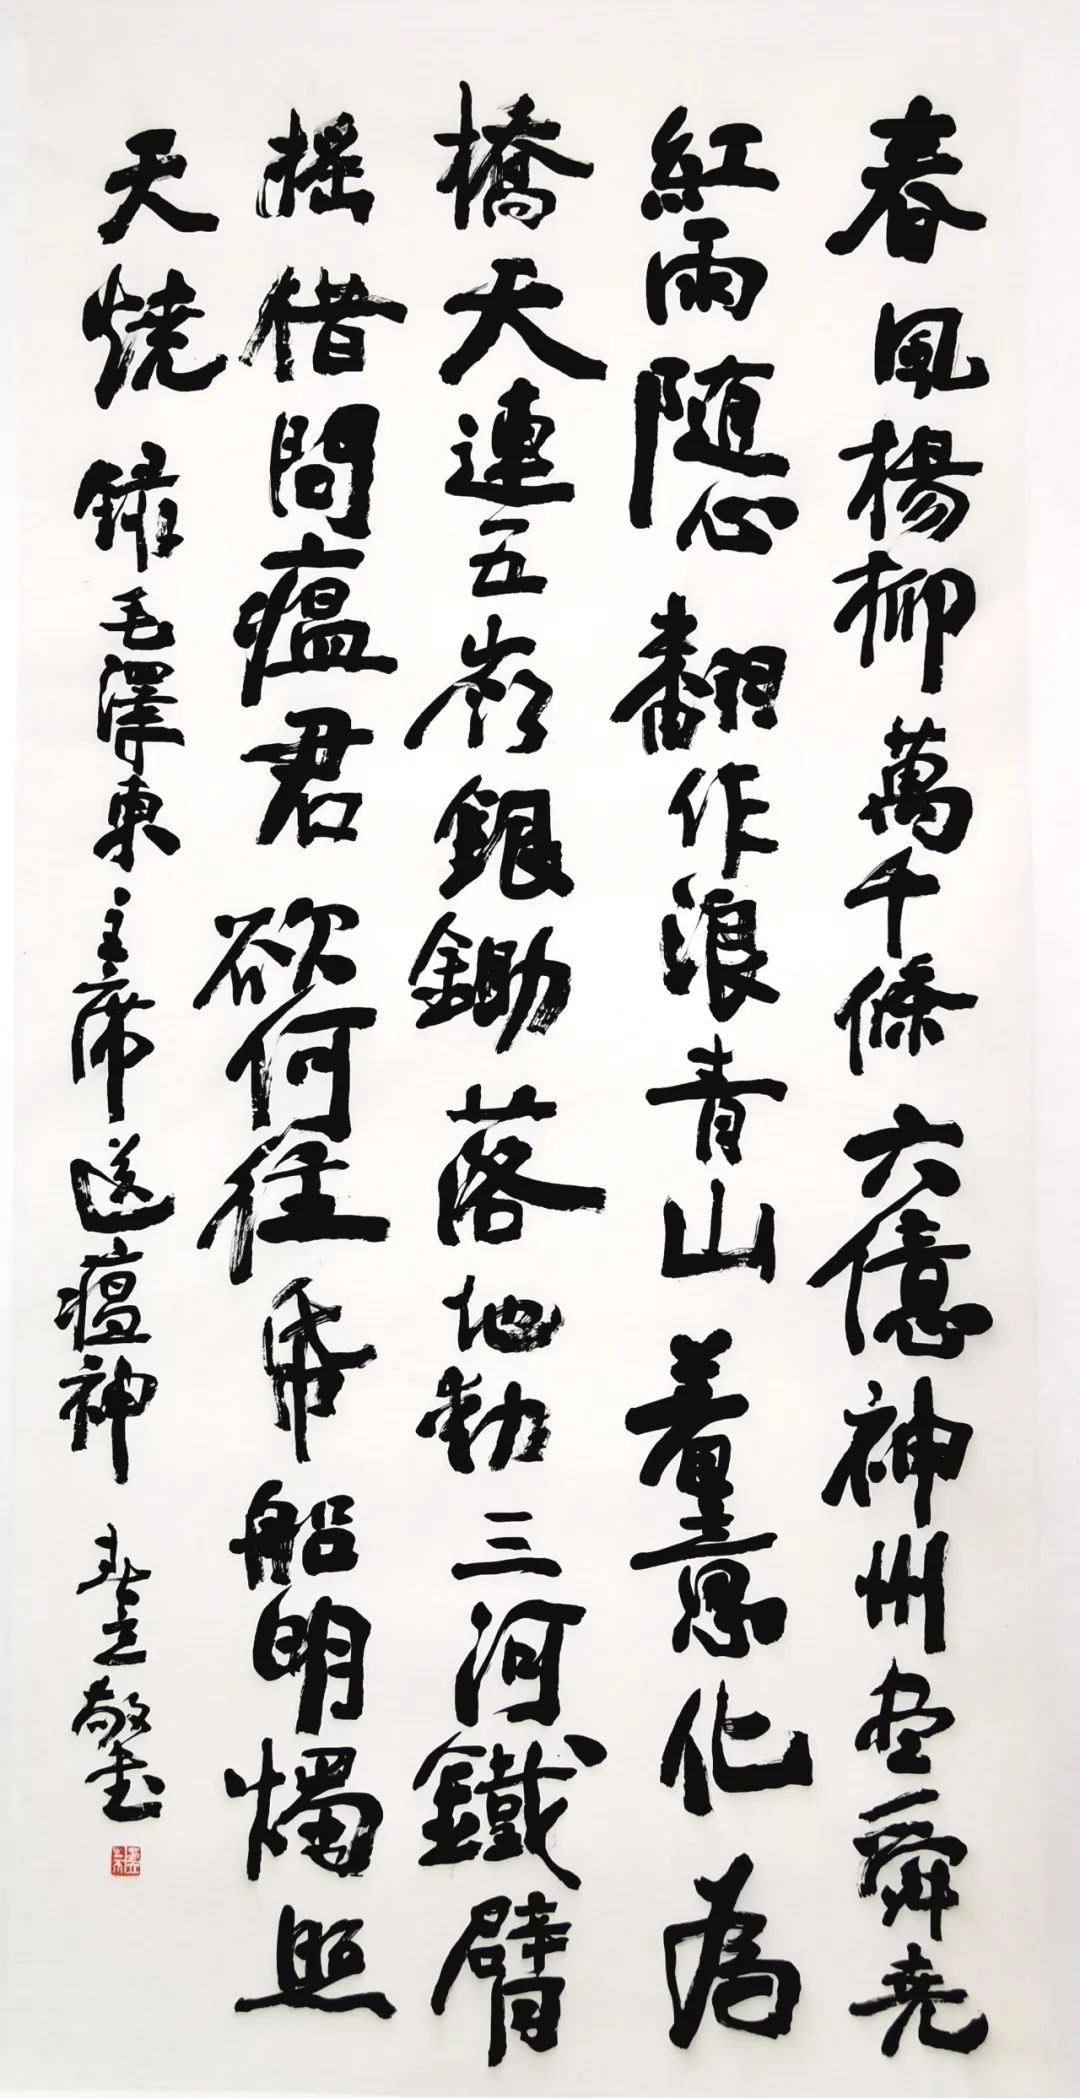 春風楊柳萬千條六億神州尽舜堯
紅雨随心翻作浪青山着意化為
橋天連五嶺銀鋤落地動三河鐵臂
摇借問瘟君欲何往帋船明燭照
天燒 錄毛澤東主席送瘟神 敬書